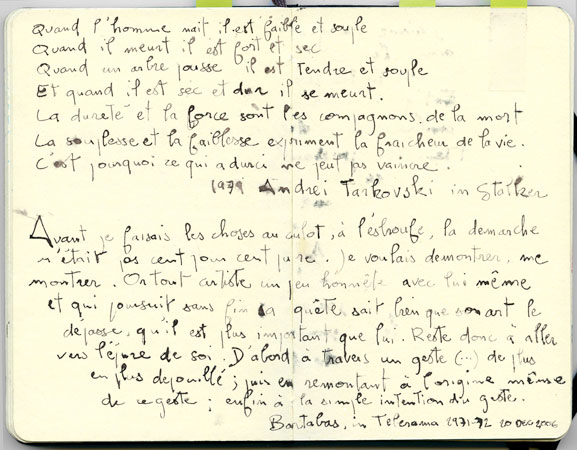 Quand l'homme nait il est faible et souple
Quand il meurt il est fort et sec
Quand un arbre pousse il est tendre et souple
Et quand il est sec et dur il se meurt.
La dureté et la force sont les compagnons de la mort
La souplesse et la faiblesse expriment la fraicheur de la vie.
C'est pourquoi ce qui a durci ne peut pas vaincre.
1979 Andrei Tarkovski in Stalker
Avant je faisais les choses au culot, à l'éstroufe, la demarche
n'était pas cent pour cent pure. Je voulais demontrer, me
montrer. Or tout artiste un peu honnête avec lui même
et qui poursuit sans fin sa quête sait bien que son art le
dépasse, qu'il est plus important que lui. Reste donc à aller
vers l'épure de soi. D'abord à travers un geste (...) de plus
en plus depouillé; puis en remontant à l'origine même
de ce geste; enfin à la simple intention du geste.
Bartabas, in Télerama 2971-72 20 DEC 2006